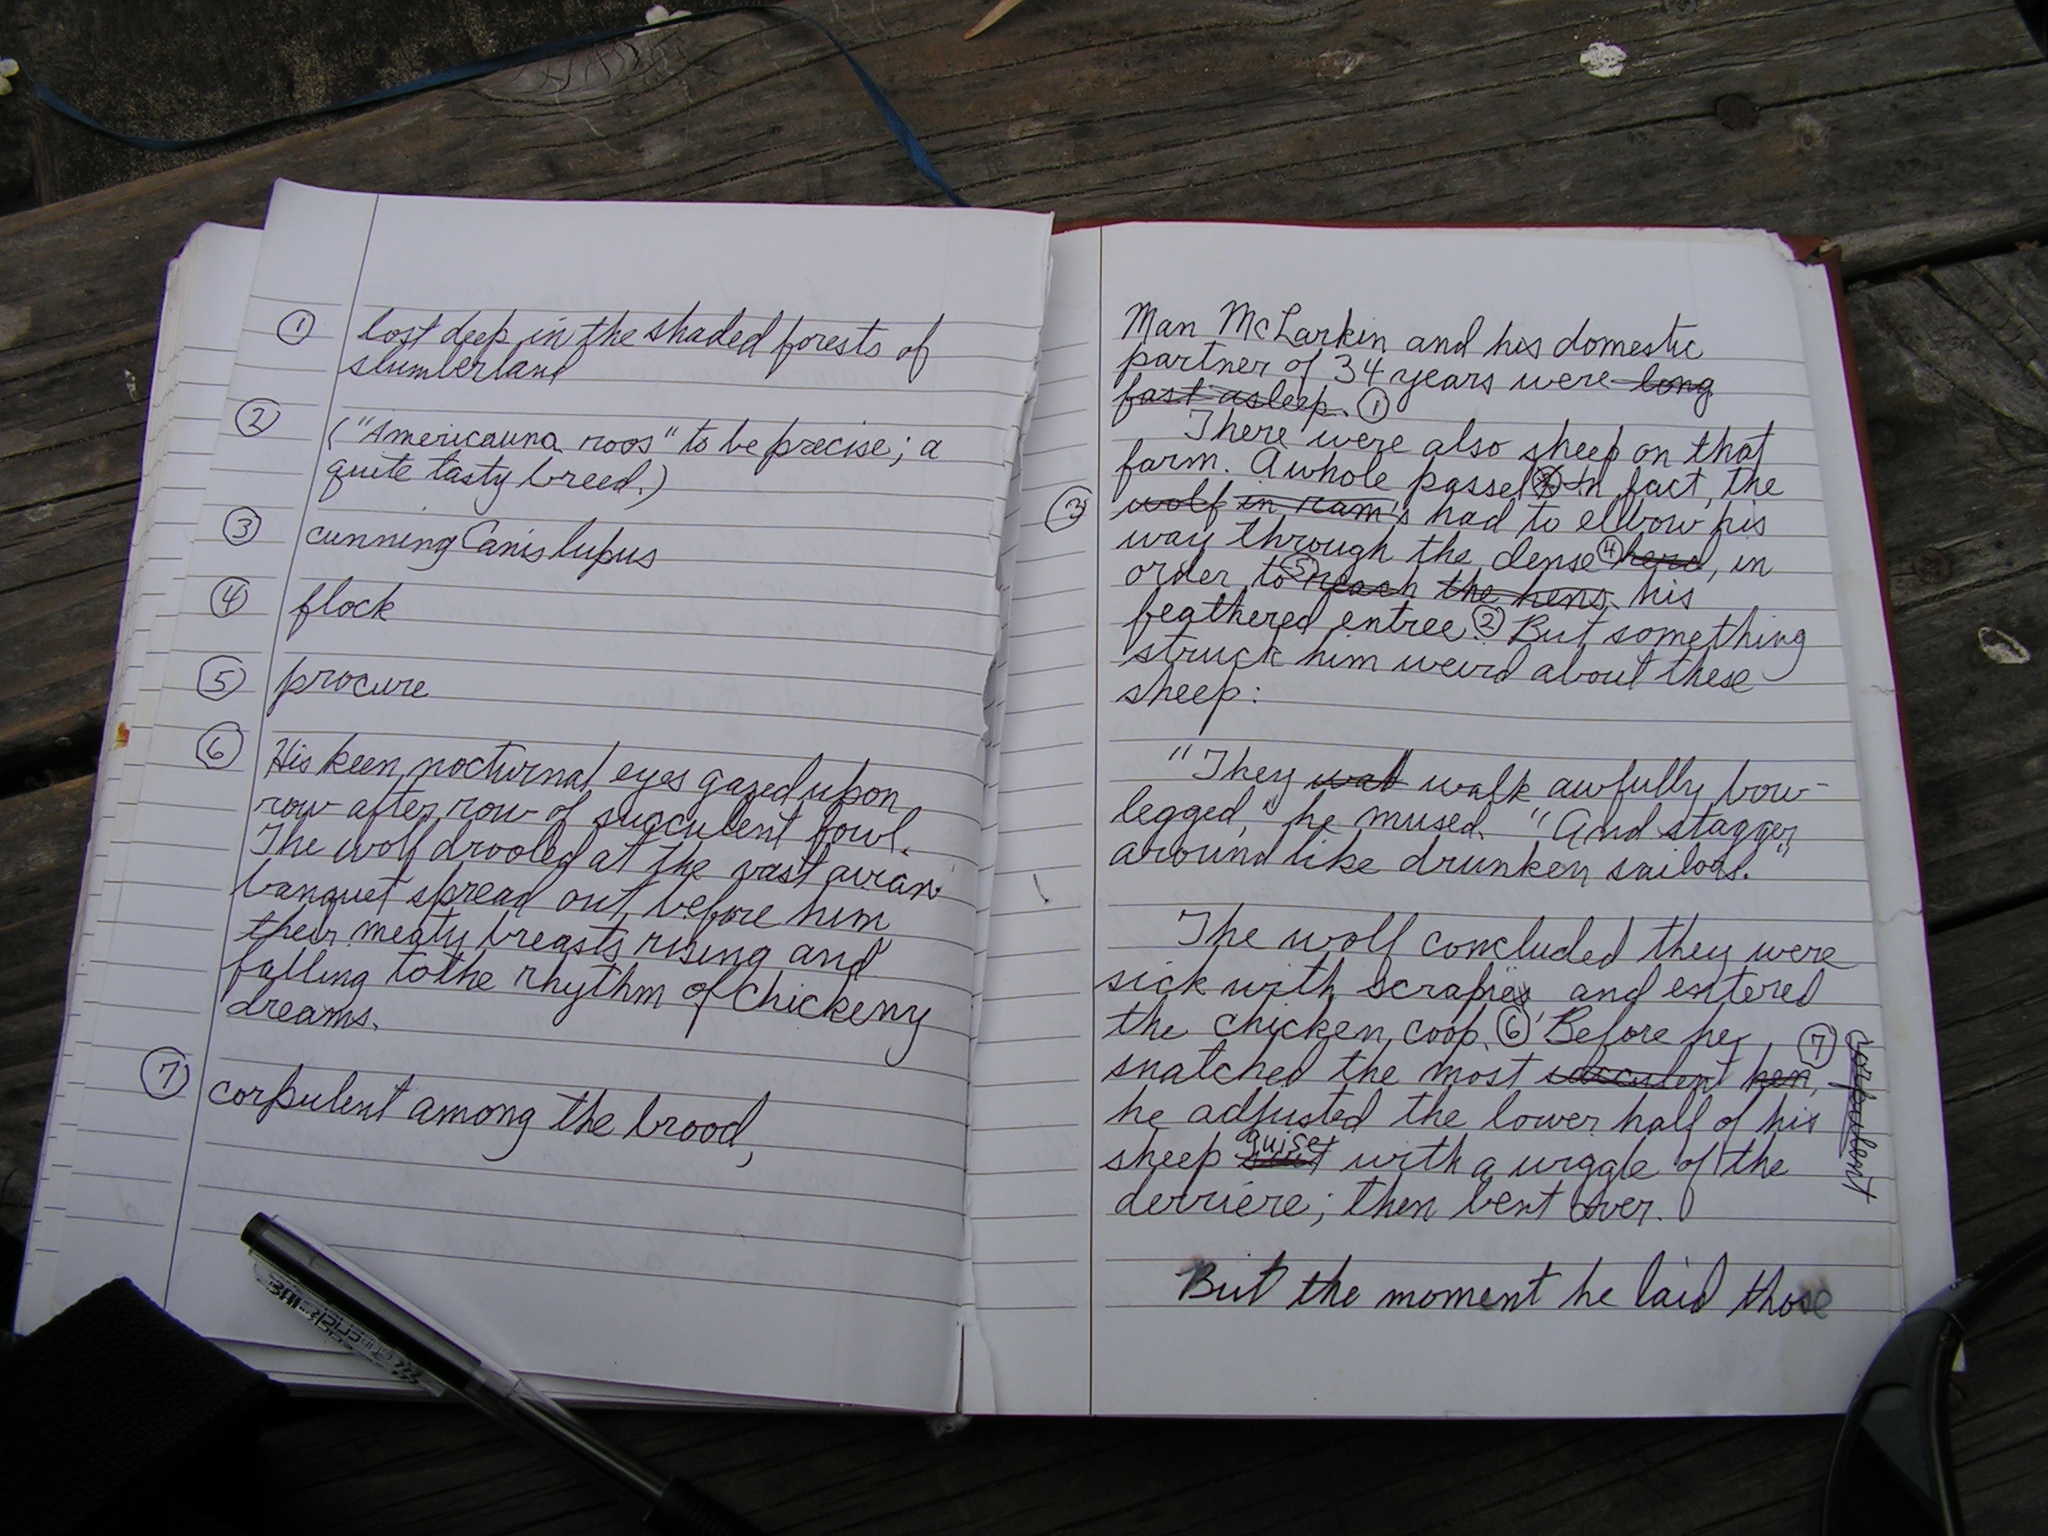 ① lost deep in the shaded forests of
slumberland
② ("Americauna roos" to be precise; a
quite tasty breed.)
③ cunning Canis lupus
④ flock
⑤ procure
⑥ His keen nocturnal eyes gazed upon
row after row of succulent fowl.
The wolf drooled at the vast avian
banquet spread out before him
their meaty breasts rising and
falling to the rhythm of chickeny
dreams.
⑦ corpulent among the brood,
Man McLarkin and his domestic
partner of 34 years were long
fast asleep. ①
There were also sheep on that
farm. A whole passel In fact, the
③ wolf in ram's had to elbow his
way through the dense ④ herd, in
order to ⑤ reach the hens. his
feathered entree. ② But something
struck him weird about these
sheep:
"They wal walk awfully bow-
legged," he mused. "And stagger
around like drunken sailors."
The wolf concluded they were
sick with scrapies and entered
the chicken coop. ⑥ Before he
snatched the most succulent hen, ⑦
corpulent
he adjusted the lower half of his
guise
sheep suit with a wiggle of the
derriére; then bent over.
But the moment he laid those